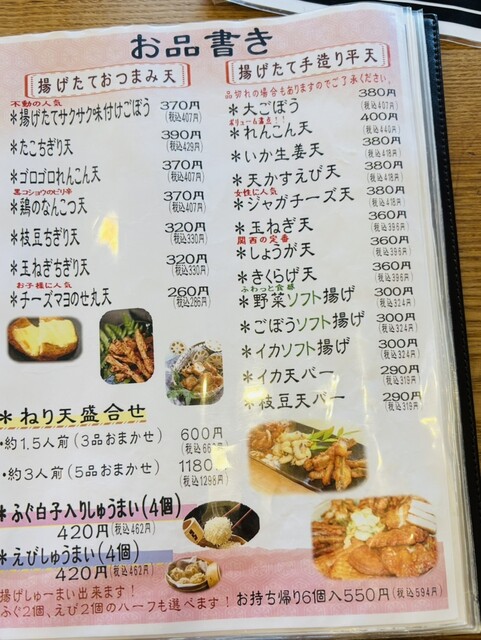 お品書き
揚げたておつまみ天
不動の人気
＊揚げたてサクサク味付けごぼう 370円
(税込407円)
＊たこちぎり天 390円
(税込429円)
＊ゴロゴロれんこん天 370円
(税込407円)
黒コショウのピリ辛
＊鶏のなんこつ天 370円
(税込407円)
＊枝豆ちぎり天 320円
(税込330円)
＊玉ねぎちぎり天 320円
(税込330円)
お子様に人気
＊チーズマヨのせ丸天 260円
(税込286円)
＊ねり天盛合せ
・約1.5人前(3品おまかせ) 600円
・約3人前(5品おまかせ) 1180円
(税込1298円)
＊ふぐ白子入りしゅうまい(4個)
420円(税込462円)
＊えびしゅうまい(4個)
420円(税込462円)
揚げしゅーまい出来ます!
ふぐ2個、えび2個のハーフも選べます!
揚げたて手造り平天
品切れの場合もありますのでご了承ください。
＊大ごぼう 380円
(税込407円)
ボリューム満点!!
＊れんこん天 400円
(税込440円)
＊いか生姜天 380円
(税込418円)
＊天かすえび天 380円
(税込418円)
女性に人気
＊ジャガチーズ天 380円
(税込418円)
＊玉ねぎ天 360円
(税込396円)
関西の定番
＊しょうが天 360円
(税込396円)
＊きくらげ天 360円
(税込396円)
ふわっと食感
＊野菜ソフト揚げ 300円
(税込324円)
＊ごぼうソフト揚げ 300円
(税込324円)
＊イカソフト揚げ 300円
(税込324円)
＊イカ天バー 290円
(税込319円)
＊枝豆天バー 290円
(税込319円)
お持ち帰り6個入550円(税込594円)